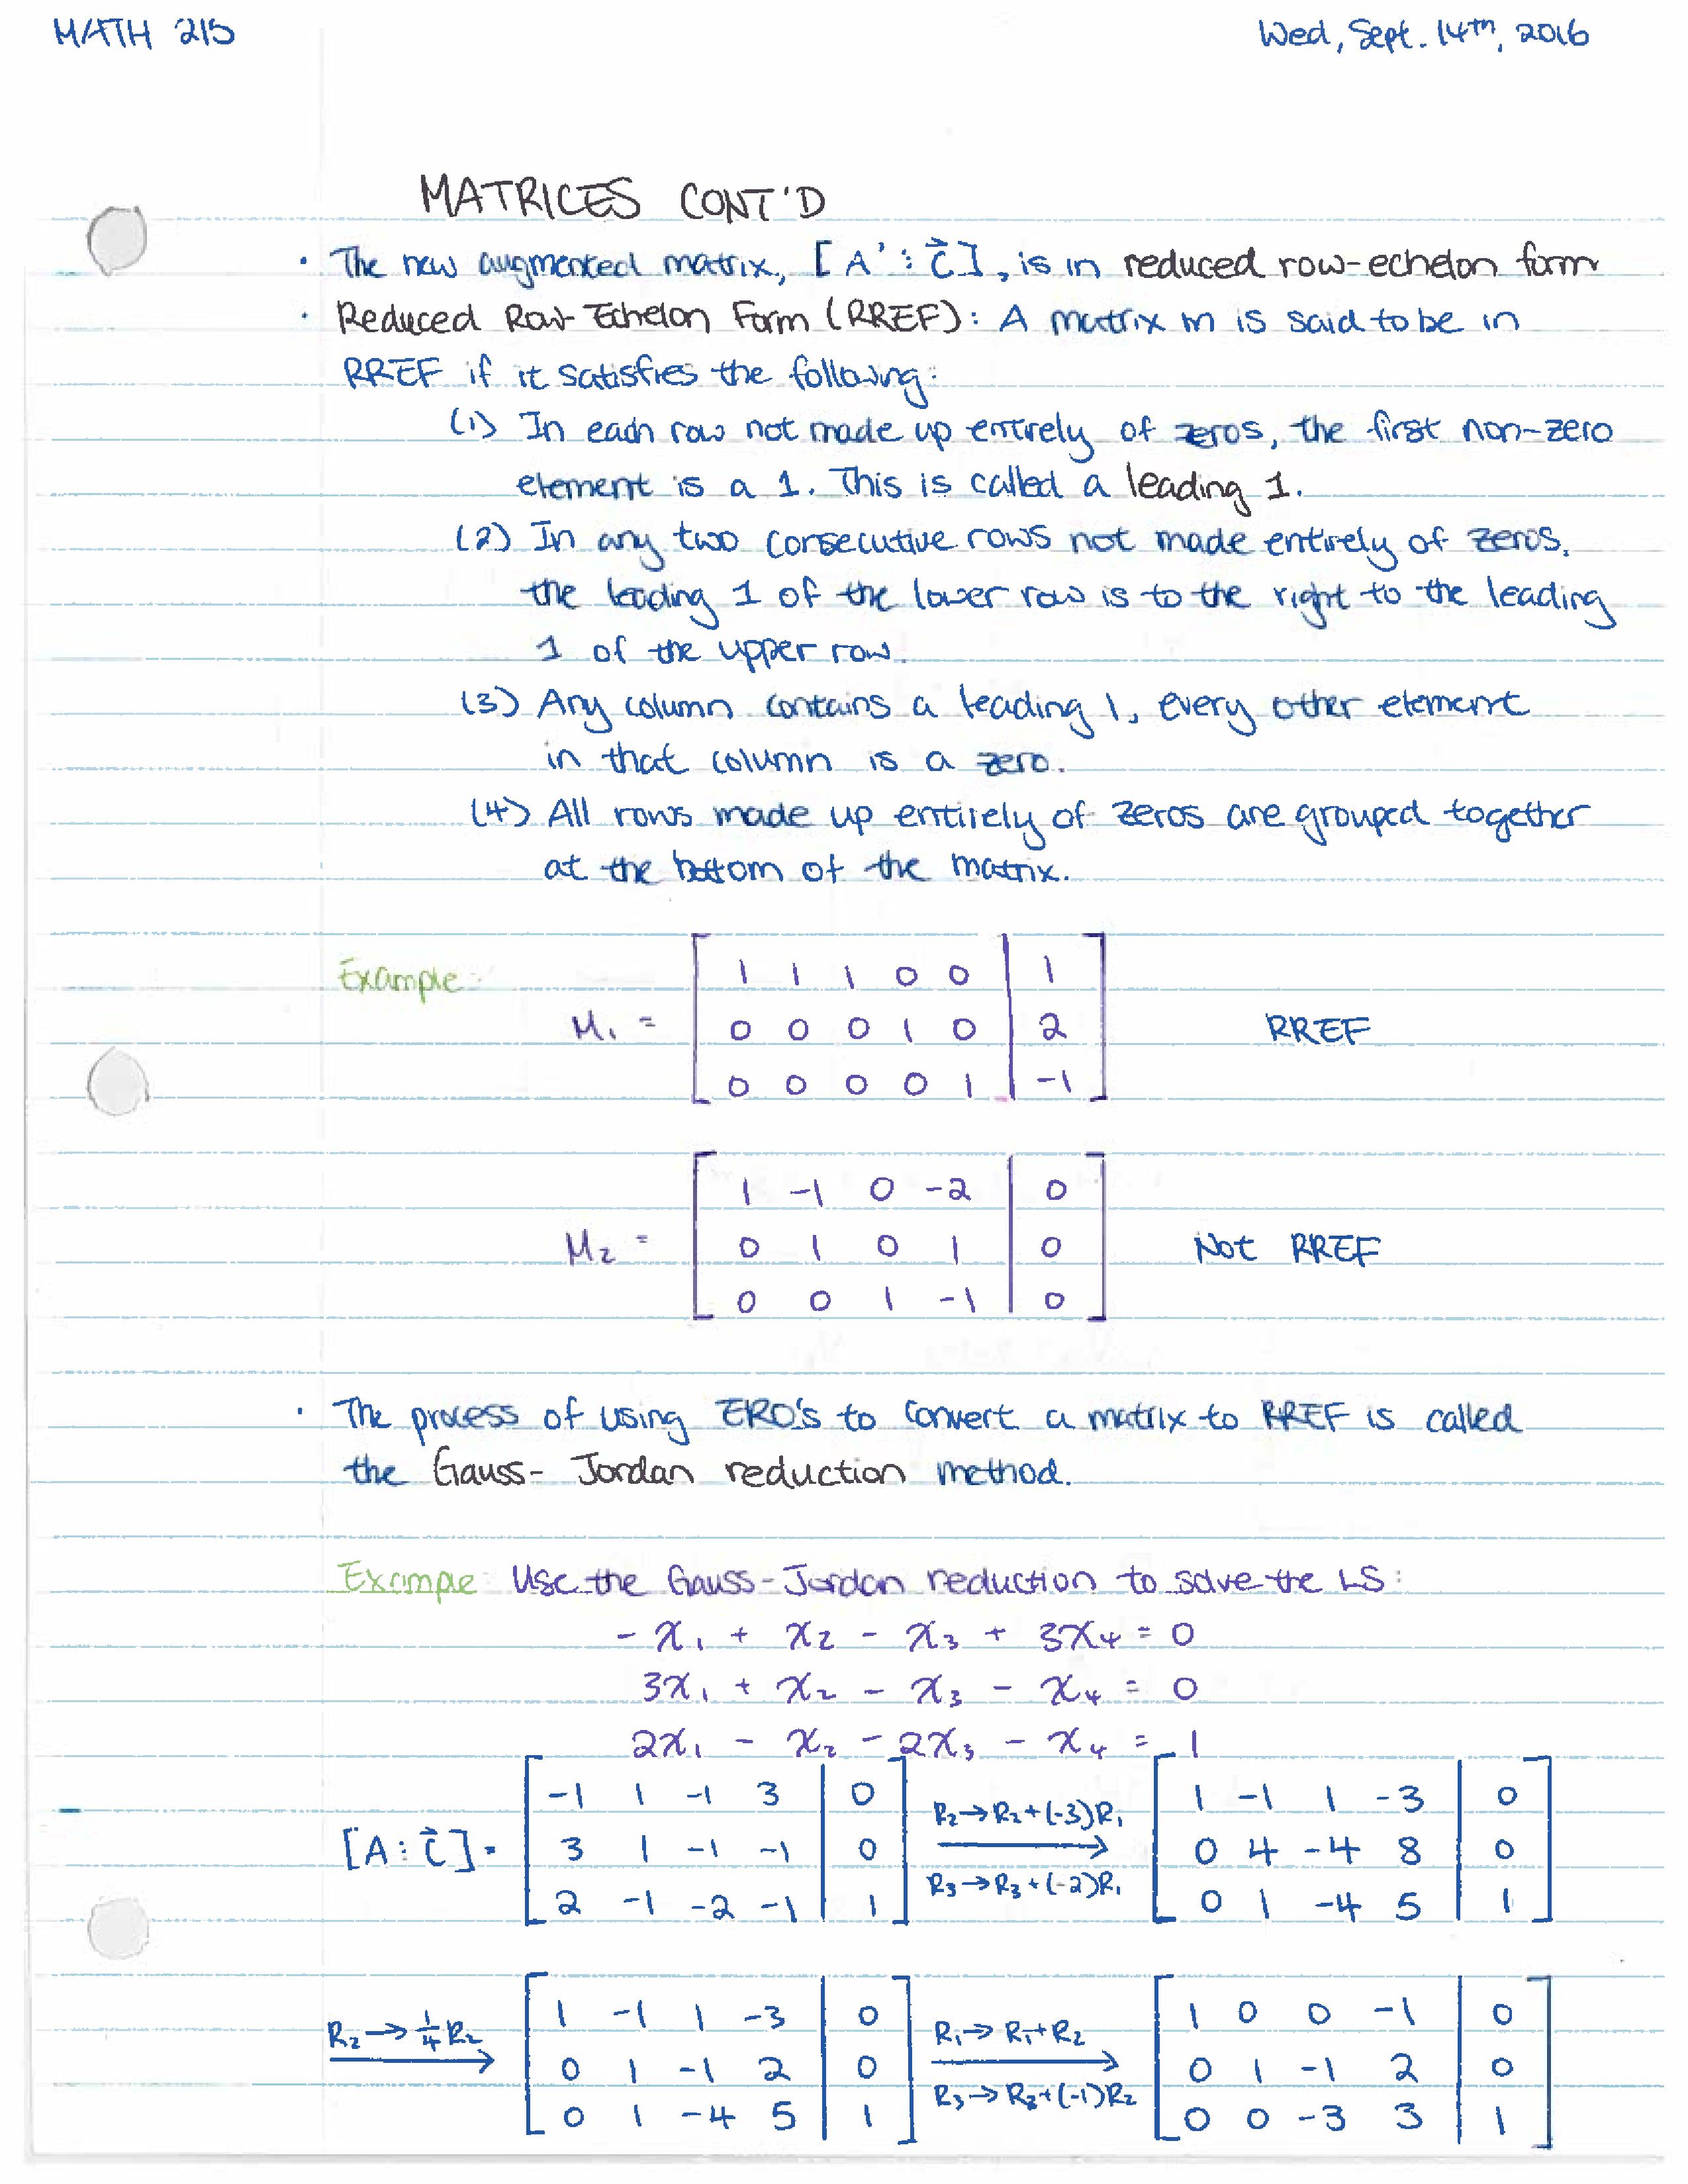 MATH 215
Wed, Sept. 14th, 2016
MATRICES CONT'D
· The new augmented matrix, [A' ⋮ C⃗], is in reduced row-echelon form
· Reduced Row Echelon Form (RREF): A matrix m is said to be in
RREF if it satisfies the following:
(1) In each row not made up entirely of zeros, the first non-zero
element is a 1. This is called a leading 1.
(2) In any two consecutive rows not made entirely of zeros,
the leading 1 of the lower row is to the right to the leading
1 of the upper row.
(3) Any column contains a leading 1, every other element
in that column is a zero.
(4) All rows made up entirely of zeros are grouped together
at the bottom of the matrix.
Example:
M₁ = [ 1 1 1 0 0 | 1 ]
[ 0 0 0 1 0 | 2 ] RREF
[ 0 0 0 0 1 | -1 ]
M₂ = [ 1 -1 0 -2 | 0 ]
[ 0 1 0 1 | 0 ] Not RREF
[ 0 0 1 -1 | 0 ]
· The process of using ERO's to convert a matrix to RREF is called
the Gauss-Jordan reduction method.
Example: Use the Gauss-Jordan reduction to solve the LS:
- x₁ + x₂ - x₃ + 3x₄ = 0
3x₁ + x₂ - x₃ - x₄ = 0
2x₁ - x₂ - 2x₃ - x₄ = 1
[A ⋮ C⃗] = [ -1 1 -1 3 | 0 ] R₂→R₂+(-3)R₁ [ 1 -1 1 -3 | 0 ]
[ 3 1 -1 -1 | 0 ] → [ 0 4 -4 8 | 0 ]
[ 2 -1 -2 -1 | 1 ] R₃→R₃+(-2)R₁ [ 0 1 -4 5 | 1 ]
R₂→¼R₂ [ 1 -1 1 -3 | 0 ] R₁→R₁+R₂ [ 1 0 0 -1 | 0 ]
→ [ 0 1 -1 2 | 0 ] → [ 0 1 -1 2 | 0 ]
[ 0 1 -4 5 | 1 ] R₃→R₃+(-1)R₂ [ 0 0 -3 3 | 1 ]